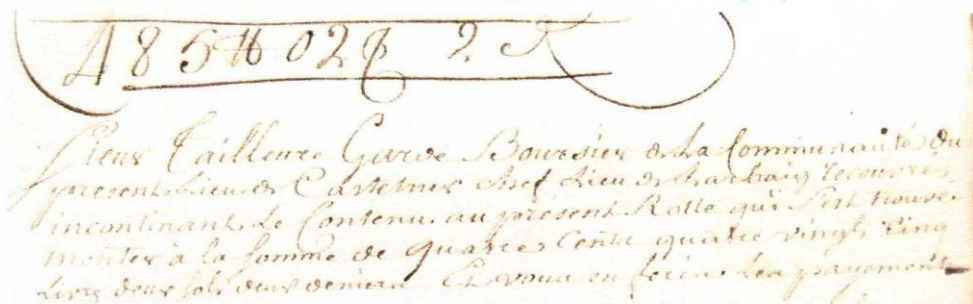 485 ₶ 02 ſ 2 d
Sieur Tailleure Garde Boursier de La Communauté du
present Lieu de Castelner chef Lieu de recouvrés
incontinant Le Contenu au présent Rolle qui s'est trouvé
monter à la somme de quatre Cents quatre vingts Cinq
Livres deux sols deux deniers Et vous en ferés Les payements